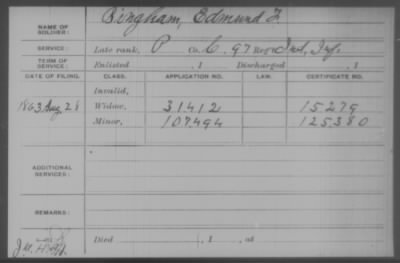 NAME OF SOLDIER: Bingham, Edmund F.
SERVICE: Late rank, P Co. C, 97 Reg't Ind. Inf.
TERM OF SERVICE: Enlisted , 1 Discharged , 1
DATE OF FILING. CLASS. APPLICATION NO. LAW. CERTIFICATE NO.
Invalid,
1863, Aug. 28 Widow, 31.412 15279
Minor, 107.494 125.380
ADDITIONAL SERVICES:
REMARKS:
Died , 1 , at